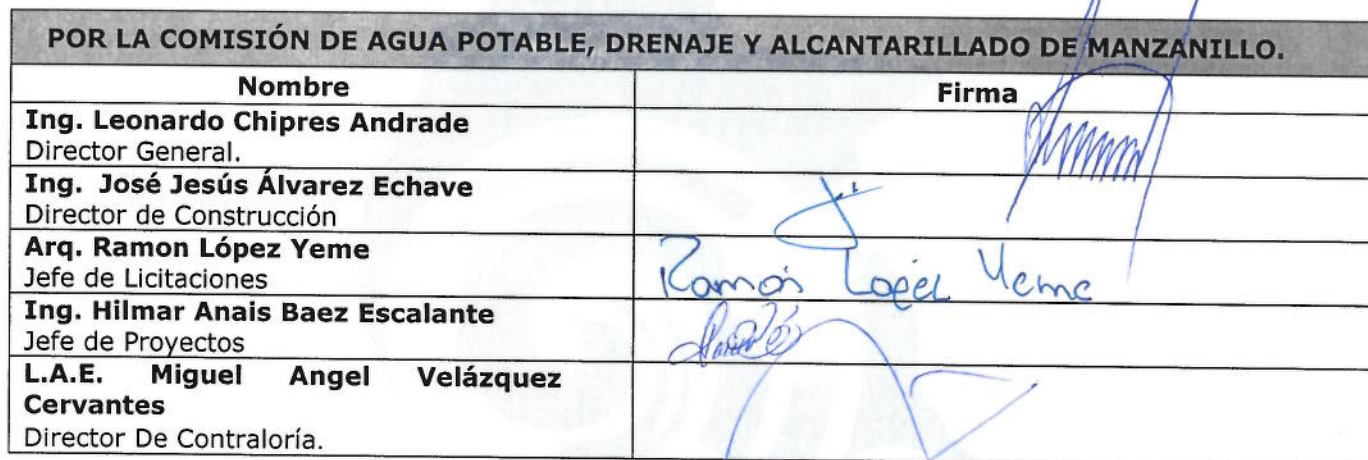 POR LA COMISIÓN DE AGUA POTABLE, DRENAJE Y ALCANTARILLADO DE MANZANILLO.
Nombre Firma
Ing. Leonardo Chipres Andrade
Director General.
Ing. José Jesús Álvarez Echave
Director de Construcción
Arq. Ramon López Yeme
Jefe de Licitaciones
Ramón López Yeme
Ing. Hilmar Anais Baez Escalante
Jefe de Proyectos
L.A.E. Miguel Angel Velázquez
Cervantes
Director De Contraloría.